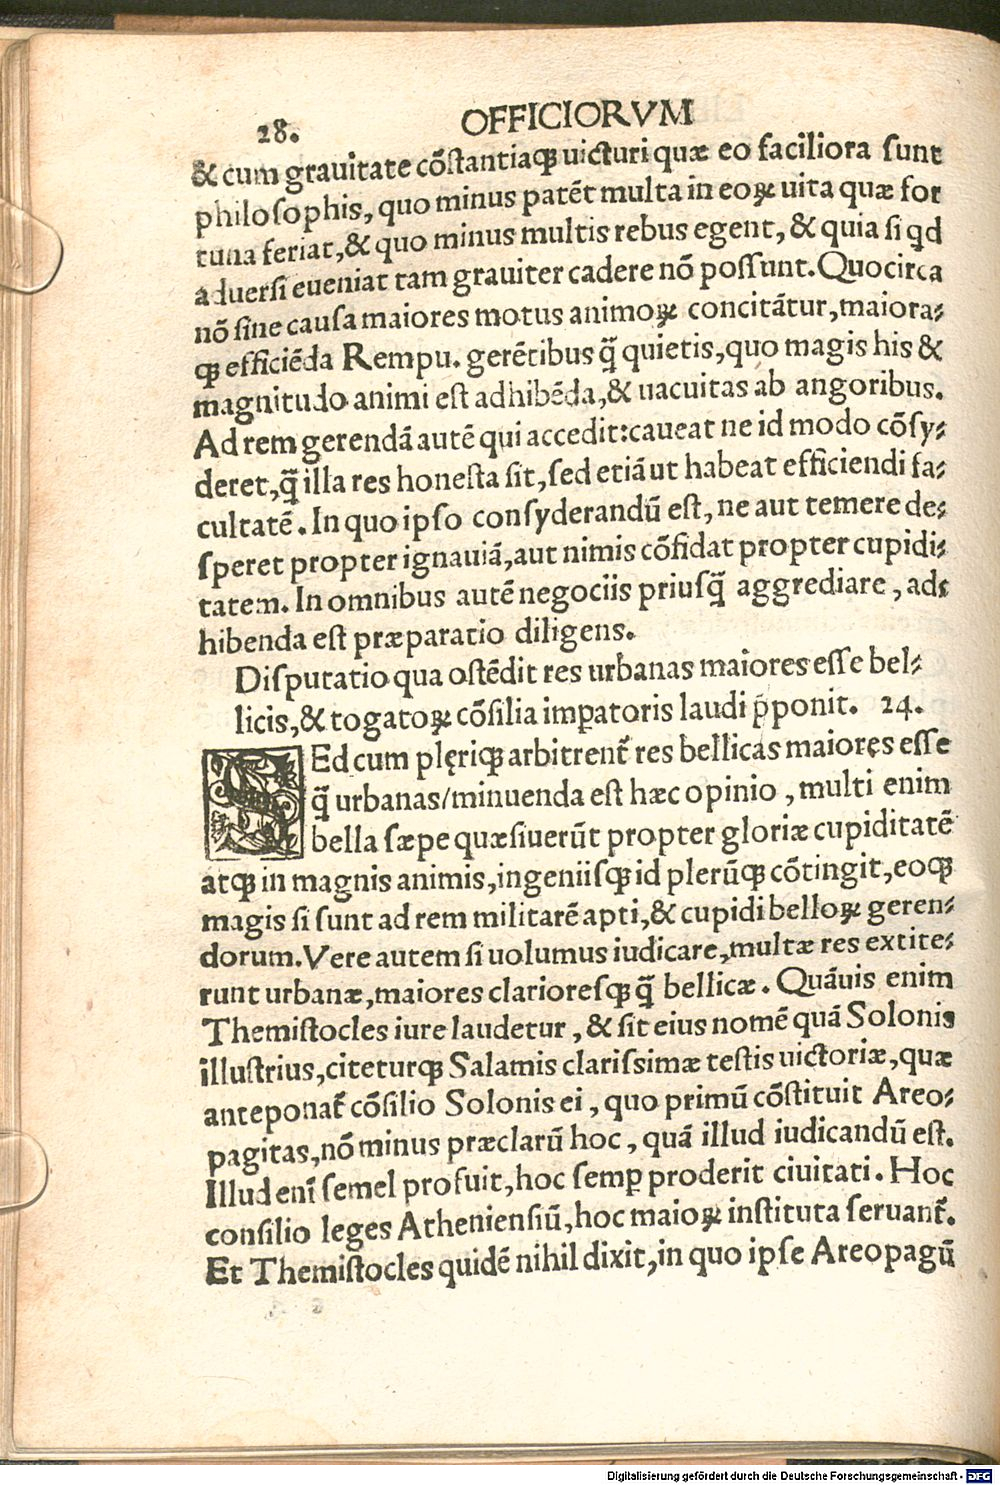 28. OFFICIORVM
& cum grauitate cõſtantiaqꝫ uicturi quæ eo faciliora ſunt
philoſophis, quo minus patẽt multa in eoꝝ uita quæ for
tuna feriat, & quo minus multis rebus egent, & quia ſi qd
aduerſi eueniat tam grauiter cadere nõ poſſunt. Quocirca
nõ ſine cauſa maiores motus animoꝝ concitãtur, maiora⸗
qꝫ efficiẽda Rempu. gerẽtibus q̃ quietis, quo magis his &
magnitudo animi eſt adhibẽda, & uacuitas ab angoribus.
Ad rem gerendã autẽ qui accedit: caueat ne id modo cõſy⸗
deret, q̃ illa res honeſta ſit, ſed etiã ut habeat efficiendi fa⸗
cultatẽ. In quo ipſo conſyderandũ eſt, ne aut temere de⸗
ſperet propter ignauiã, aut nimis cõfidat propter cupidi⸗
tatem. In omnibus autẽ negociis priuſq̃ aggrediare, ad⸗
hibenda eſt præparatio diligens.
Diſputatio qua oſtẽdit res urbanas maiores eſſe bel⸗
licis, & togatoꝝ cõſilia impatoris laudi p̄ponit. 24.
SEd cum plęriqꝫ arbitrent᷑ res bellicas maiores eſſe
q̃ urbanas/minuenda eſt hæc opinio, multi enim
bella ſæpe quæſiuerũt propter gloriæ cupiditatẽ
atqꝫ in magnis animis, ingeniiſqꝫ id plerũqꝫ cõtingit, eoqꝫ
magis ſi ſunt ad rem militarẽ apti, & cupidi belloꝝ geren⸗
dorum. Vere autem ſi uolumus iudicare, multæ res extite⸗
runt urbanæ, maiores clarioreſqꝫ q̃ bellicæ. Quãuis enim
Themiſtocles iure laudetur, & ſit eius nomẽ quã Solonis
illuſtrius, citeturqꝫ Salamis clariſſimæ teſtis uictoriæ, quæ
anteponat᷑ cõſilio Solonis ei, quo primũ cõſtituit Areo⸗
pagitas, nõ minus præclarũ hoc, quã illud iudicandũ eſt.
Illud enĩ ſemel profuit, hoc ſemꝑ proderit ciuitati. Hoc
conſilio leges Athenienſiũ, hoc maioꝝ inſtituta ſeruant᷑.
Et Themiſtocles quidẽ nihil dixit, in quo ipſe Areopagũ
Digitalisierung gefördert durch die Deutsche Forschungsgemeinschaft - DFG